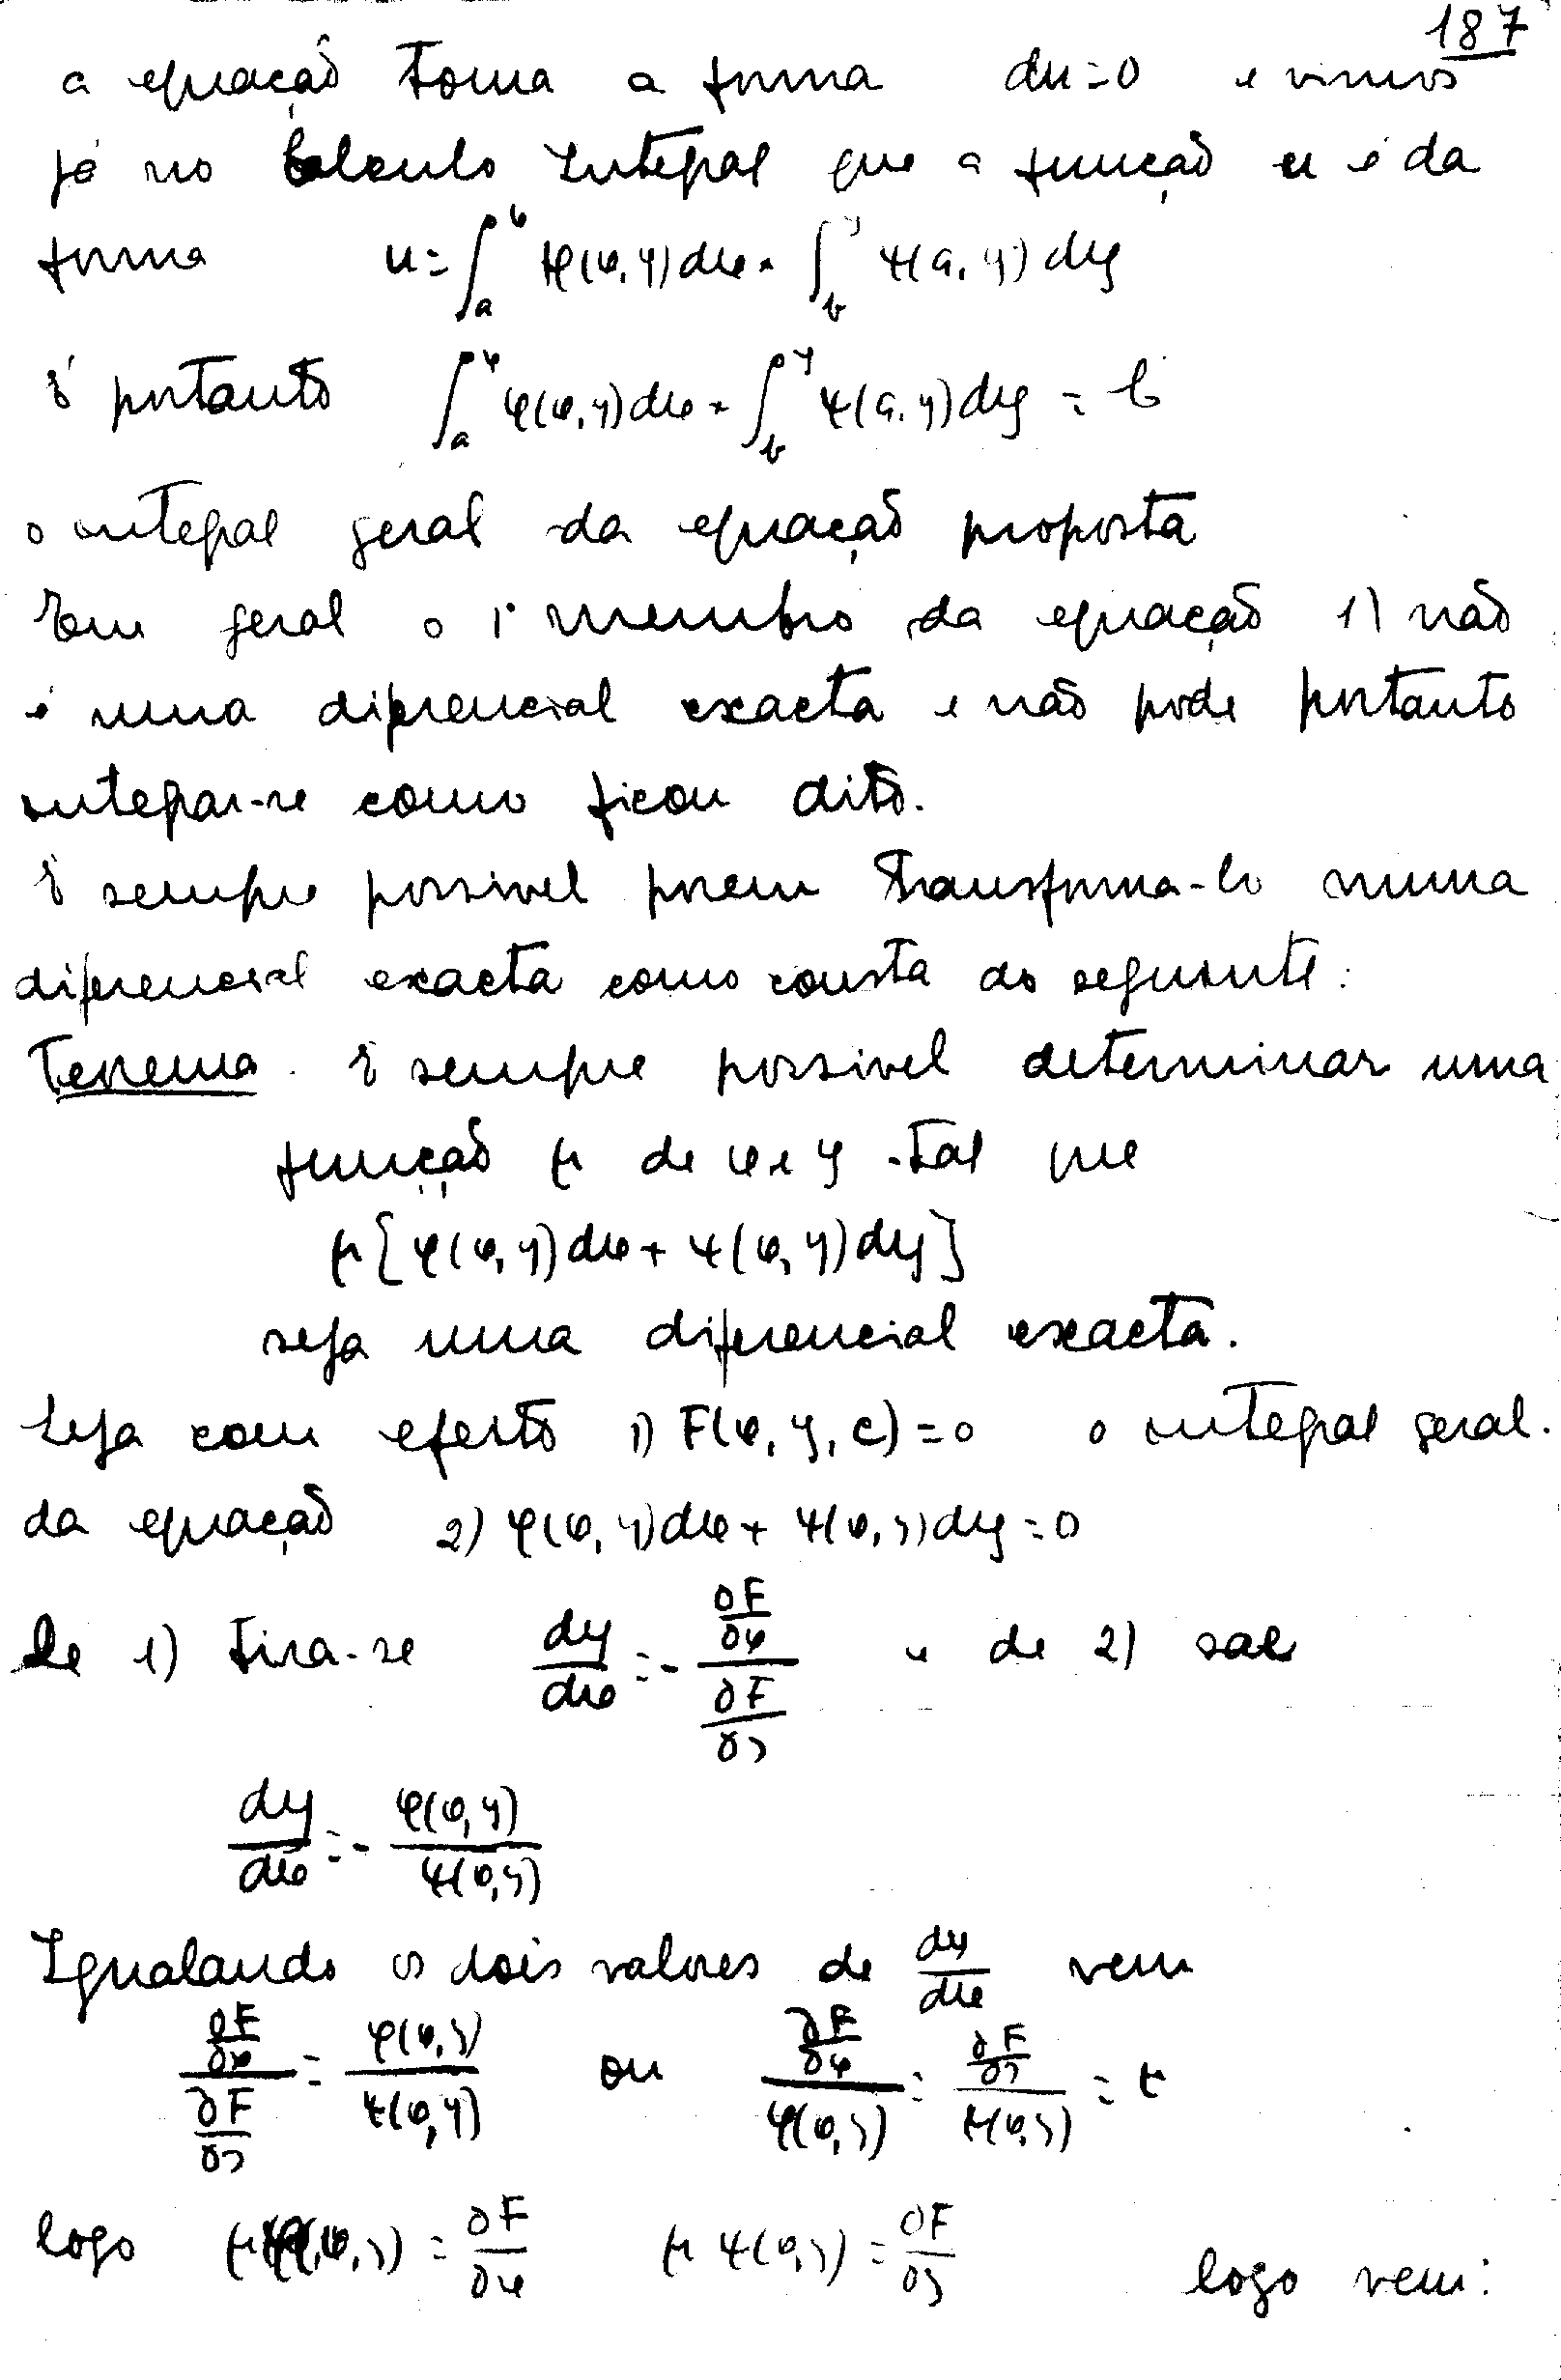 187
a equação toma a forma du=0 e vimos
já no Calculo Integral que a função u é da
forma u = ∫_a^x φ(x,y)dx + ∫_b^y ψ(a,y)dy
É portanto ∫_a^x φ(x,y)dx + ∫_b^y ψ(a,y)dy = C
o integral geral da equação proposta
Em geral o 1º membro da equação 1) não
é uma diferencial exacta e não pode portanto
integrar-se como ficou dito.
É sempre possivel porem transforma-lo numa
diferencial exacta como consta do seguinte:
Teorema. É sempre possivel determinar uma
função μ de x e y tal que
μ[φ(x,y)dx + ψ(x,y)dy]
seja uma diferencial exacta.
Seja com efeito 1) F(x,y,c)=0 o integral geral.
da equação 2) φ(x,y)dx + ψ(x,y)dy=0
De 1) tira-se dy/dx = - (∂F/∂x)/(∂F/∂y) e de 2) sae
dy/dx = - φ(x,y)/ψ(x,y)
Igualando os dois valores de dy/dx vem
(∂F/∂x)/(∂F/∂y) = φ(x,y)/ψ(x,y) ou (∂F/∂x)/φ(x,y) = (∂F/∂y)/ψ(x,y) = μ
logo μφ(x,y) = ∂F/∂x μψ(x,y) = ∂F/∂y logo vem: